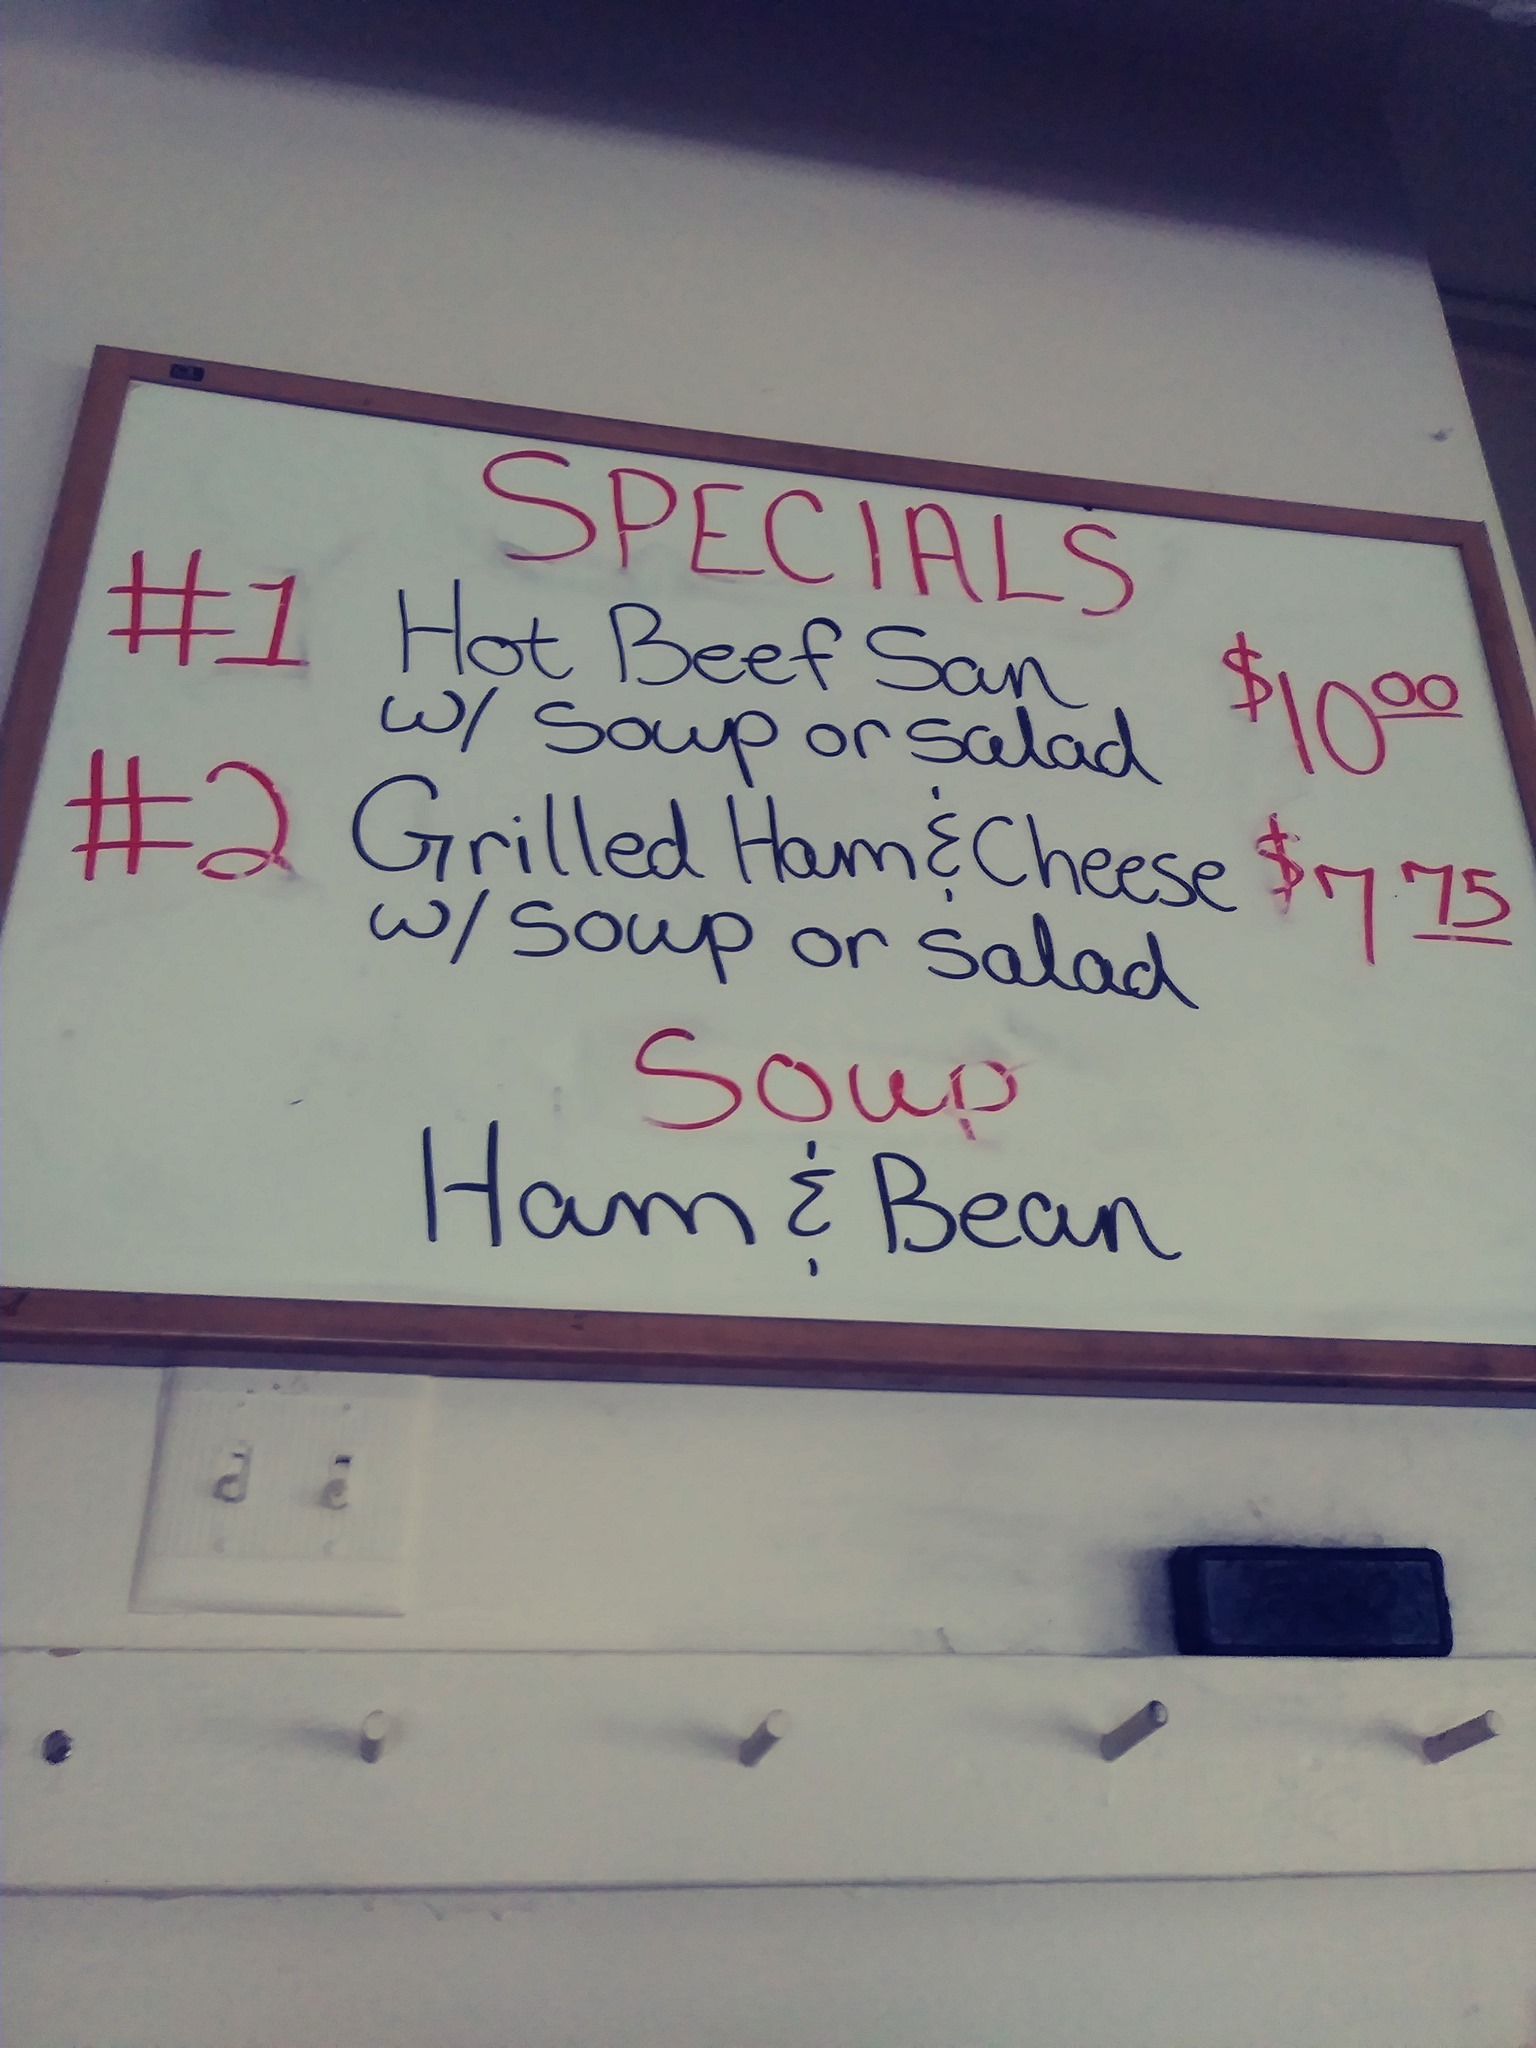 SPECIALS
#1 Hot Beef San $10.00
w/ soup or salad
#2 Grilled Ham & Cheese $7.75
w/ soup or salad
Soup
Ham & Bean